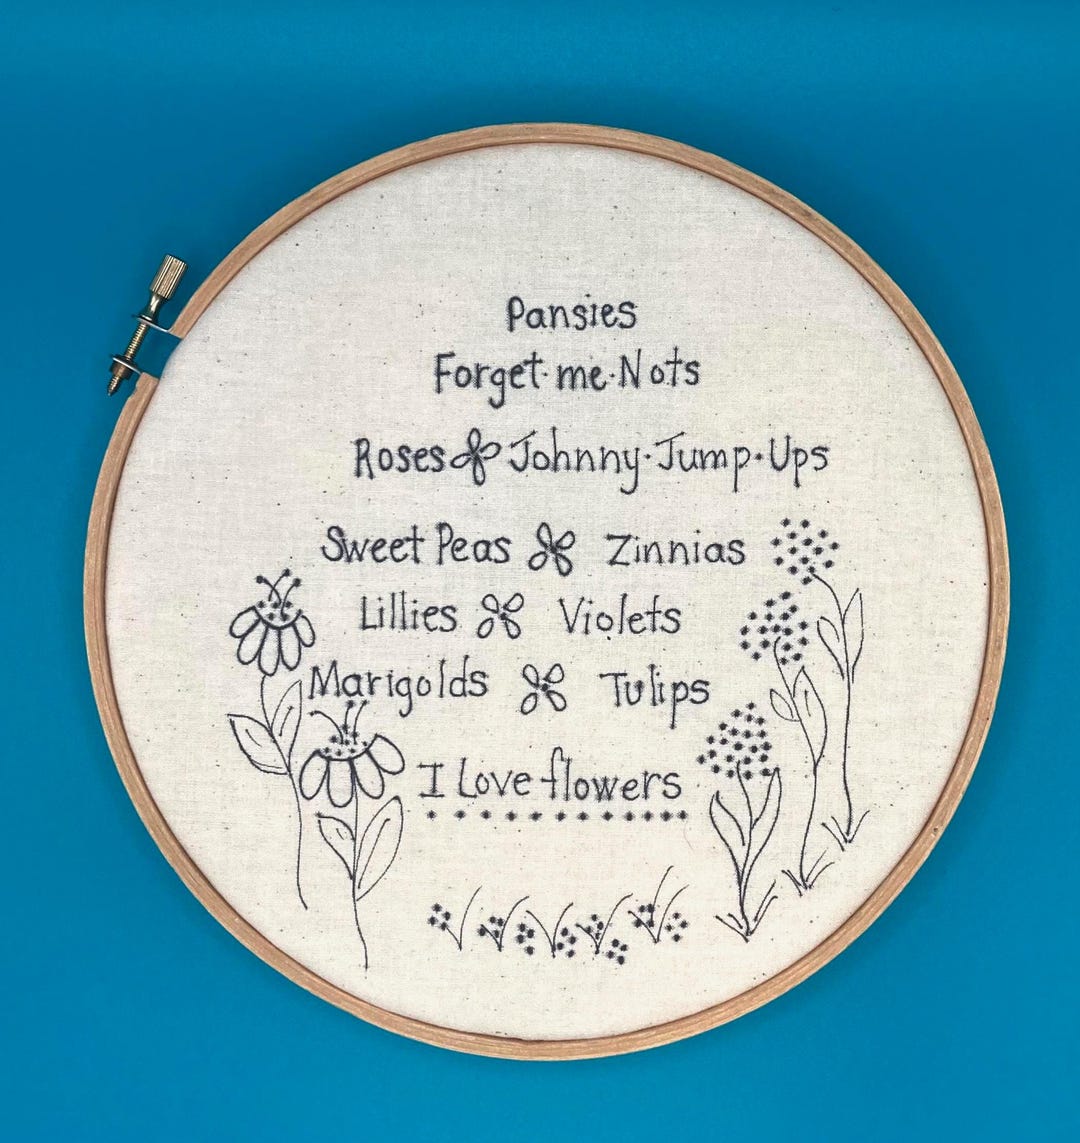 Pansies
Forget·me·Nots
Roses Johnny·Jump·Ups
Sweet Peas Zinnias
Lillies Violets
Marigolds Tulips
I Love flowers